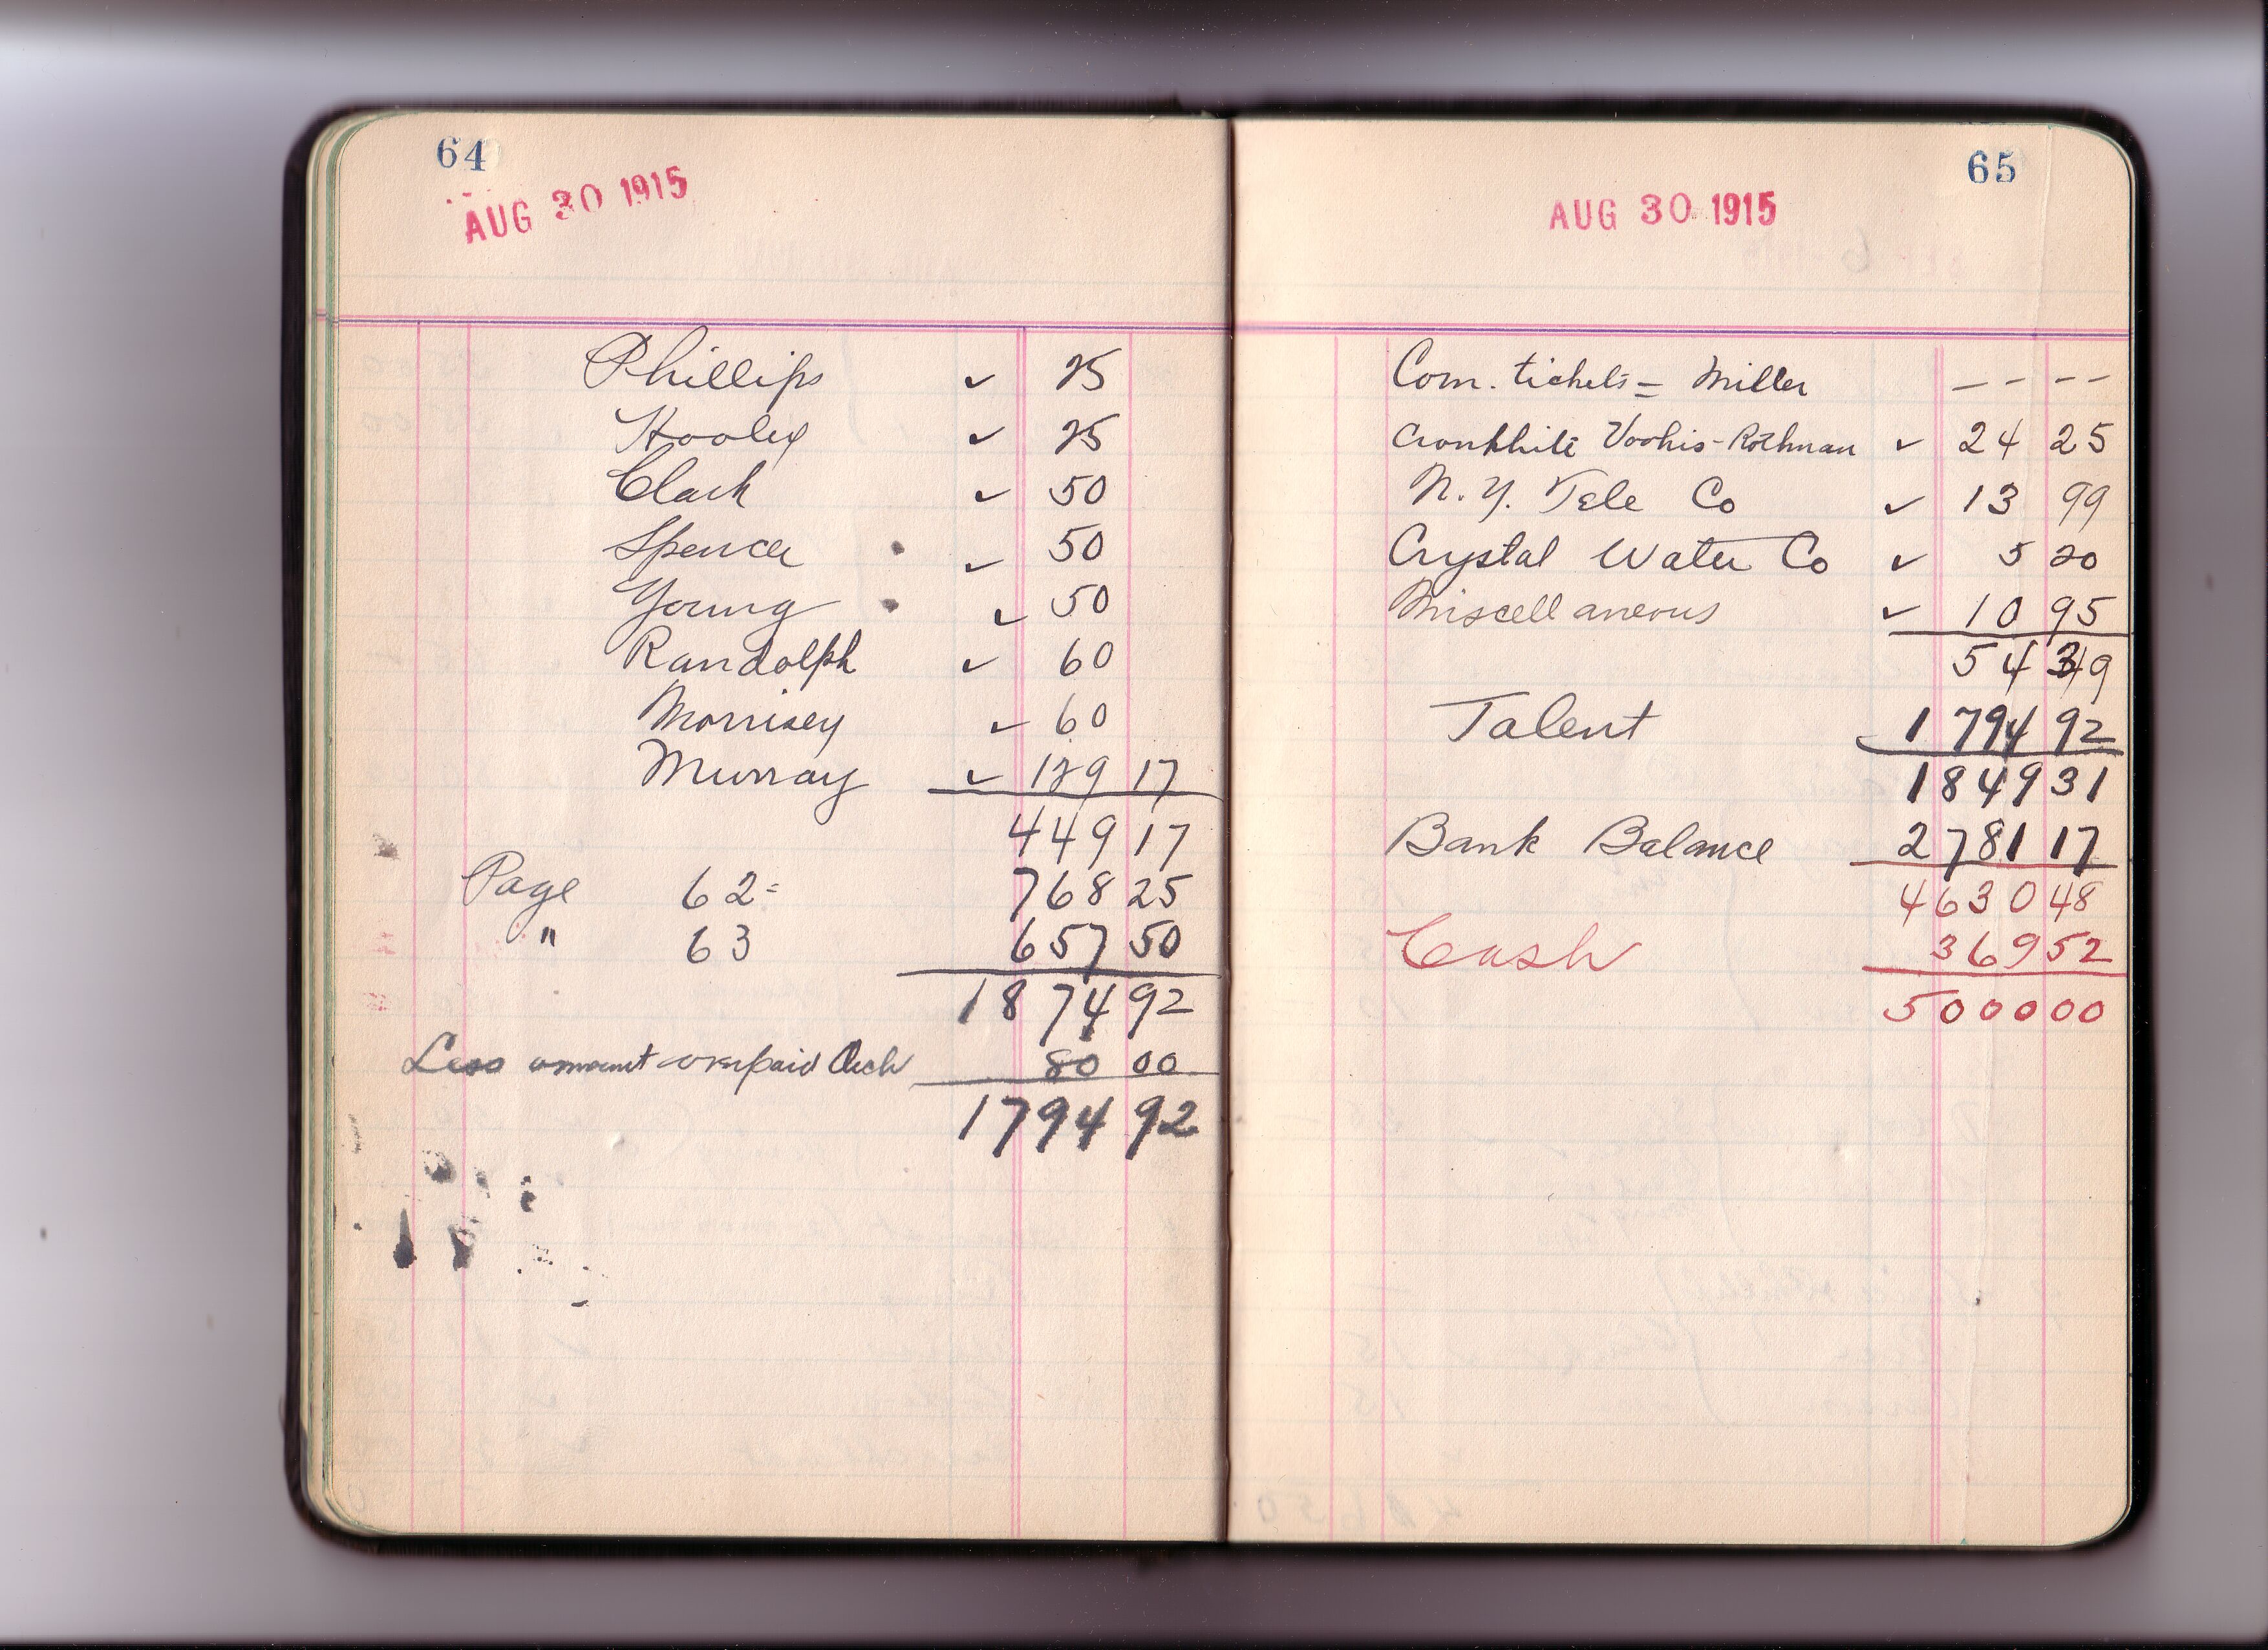 64
AUG 30 1915
Phillips ✓ 25
Hooley ✓ 25
Clark ✓ 50
Spencer ✓ 50
Young ✓ 50
Randolph ✓ 60
Morrisey ✓ 60
Murray ✓ 129 17
449 17
Page 62 = 768 25
" 63 657 50
1874 92
Less amount overpaid 80 00
1794 92
65
AUG 30 1915
Com. tickets = Miller — - - -
Cronkhite Voohis - Rothman ✓ 24 25
N.Y. Tele Co ✓ 13 99
Crystal Water Co ✓ 5 20
Miscellaneous ✓ 10 95
54 39
Talent 1794 92
1849 31
Bank Balance 2781 17
4630 48
Cash 369 52
5000 00